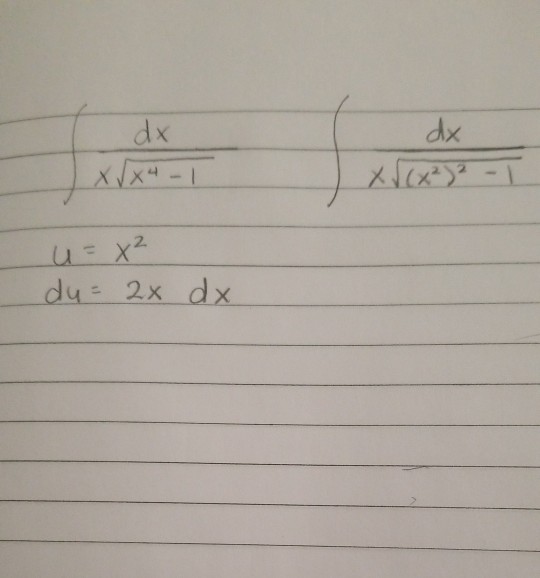 ∫ dx / x√(x⁴ - 1)    ∫ dx / x√((x²)² - 1)
u = x²
du = 2x dx